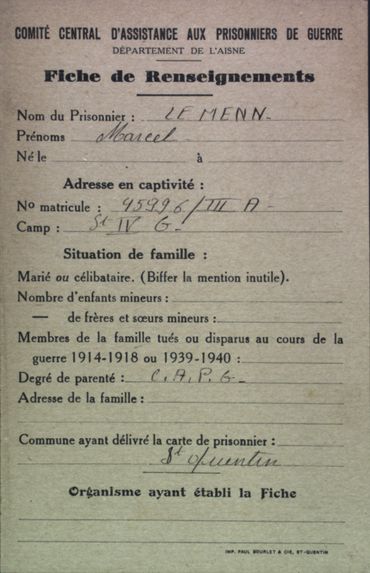 COMITÉ CENTRAL D'ASSISTANCE AUX PRISONNIERS DE GUERRE
DÉPARTEMENT DE L'AISNE
Fiche de Renseignements
Nom du Prisonnier : LE MENN
Prénoms Marcel
Né le à
Adresse en captivité :
No matricule : 95996/III A
Camp : St IV G
Situation de famille :
Marié ou célibataire. (Biffer la mention inutile).
Nombre d'enfants mineurs :
— de frères et sœurs mineurs :
Membres de la famille tués ou disparus au cours de la
guerre 1914-1918 ou 1939-1940 :
Degré de parenté : C. A. P. G
Adresse de la famille :
Commune ayant délivré la carte de prisonnier :
St Quentin
Organisme ayant établi la Fiche
IMP. PAUL BOURLET & CIE, ST-QUENTIN